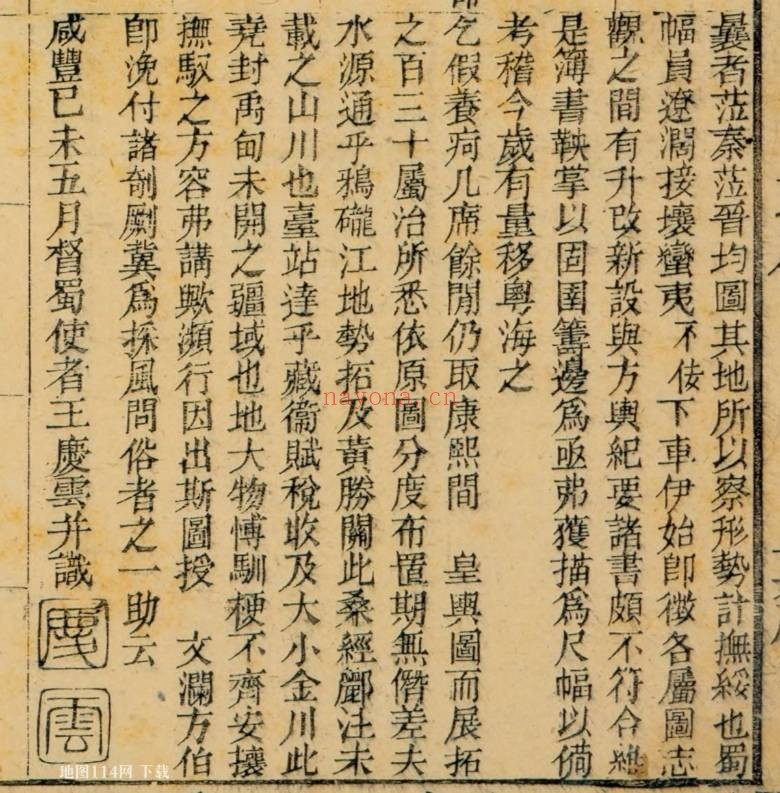 曩者蒞秦蒞晉均圖其地所以察形勢計撫綏也蜀
幅員遼濶接壤蠻夷不侫下車伊始卽徵各屬圖志
觀之間有升改新設與方輿紀要諸書頗不符合
是簿書鞅掌以固圉籌邊爲亟弗獲描爲尺幅以備
考稽今歲有量移粵海之
命
乞假養疴几席餘閒仍取康熙間 皇輿圖而展拓
之百三十屬治所悉依原圖分度布置期無僭差夫
水源通乎鴉礲江地勢拓及黃勝關此桑經酈注未
載之山川也臺站達乎藏衞賦稅收及大小金川此
堯封禹甸未開之疆域也地大物博馴梗不齊安攘
撫馭之方容弗講歟瀕行因出斯圖授 文瀾方伯
卽浼付諸剞劂冀爲採風問俗者之一助云
咸豐己未五月督蜀使者王慶雲并識
慶
雲
nayona.cn
地图114网 下载